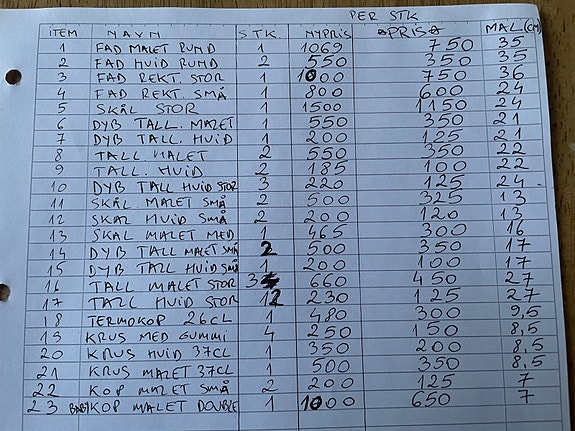 PER STK
ITEM NAVN STK NYPRIS PRIS MAL (CM)
1 FAD MALET RUND 1 1069 750 35
2 FAD HVID RUND 2 550 350 35
3 FAD REKT. STOR 1 1000 750 36
4 FAD REKT. SMÅ 1 800 600 24
5 SKÅL STOR 1 1500 1150 24
6 DYB TALL. MALET 1 550 350 21
7 DYB TALL. HVID 1 200 125 21
8 TALL. MALET 2 550 350 22
9 TALL. HVID 2 185 100 22
10 DYB TALL HVID STOR 3 220 125 24
11 SKÅL MALET SMÅ 2 500 325 13
12 SKAL HVID SMÅ 2 200 120 13
13 SKAL MALET MED 1 465 300 16
14 DYB TALL MALET SMÅ 2 500 350 17
15 DYB TALL HVID SMÅ 1 200 100 17
16 TALL MALET STOR 3 660 450 27
17 TALL HVID STOR 12 230 125 27
18 TERMOKOP 26CL 1 480 300 9,5
19 KRUS MED GUMMI 4 250 150 8,5
20 KRUS HVID 37CL 1 350 200 8,5
21 KRUS MALET 37CL 1 500 350 8,5
22 KOP MALET SMÅ 2 200 125 7
23 BABY KOP MALET DOUBLE 1 1000 650 7